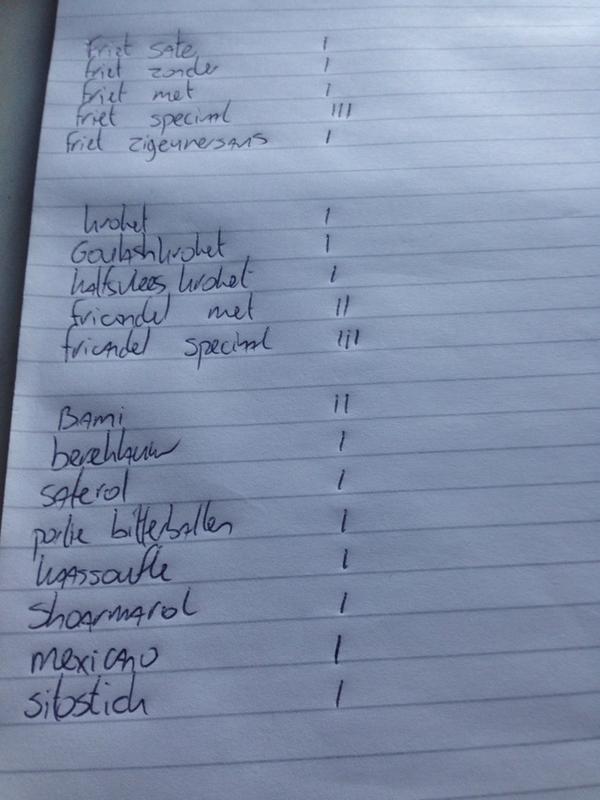 friet sate I
friet zonder I
friet met I
friet speciaal III
friet zigeunersaus I
kroket I
Goulashkroket I
kalfsvlees kroket I
fricandel met II
fricandel speciaal III
Bami II
berehkauw I
saterol I
portie bitterballen I
kaassoufle I
Shoarmarol I
mexicano I
sitostick I